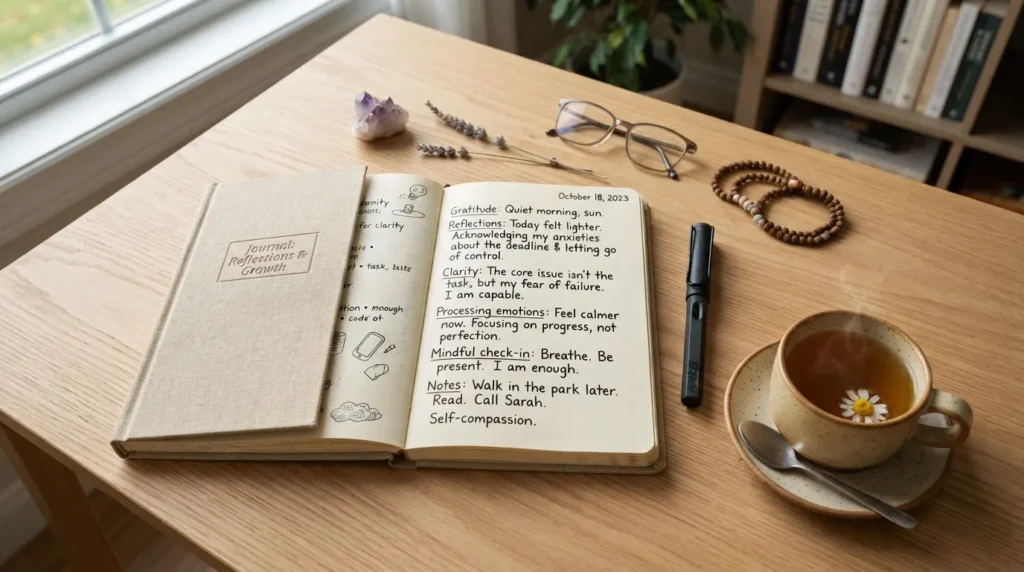 Journal:
Reflections &
Growth
for clarity
• task, taste
• code of
October 18, 2023
Gratitude: Quiet morning, sun.
Reflections: Today felt lighter.
Acknowledging my anxieties
about the deadline & letting go
of control.
Clarity: The core issue isn't the
task, but my fear of failure.
I am capable.
Processing emotions: Feel calmer
now. Focusing on progress, not
perfection.
Mindful check-in: Breathe. Be
present. I am enough.
Notes: Walk in the park later.
Read. Call Sarah.
Self-compassion.